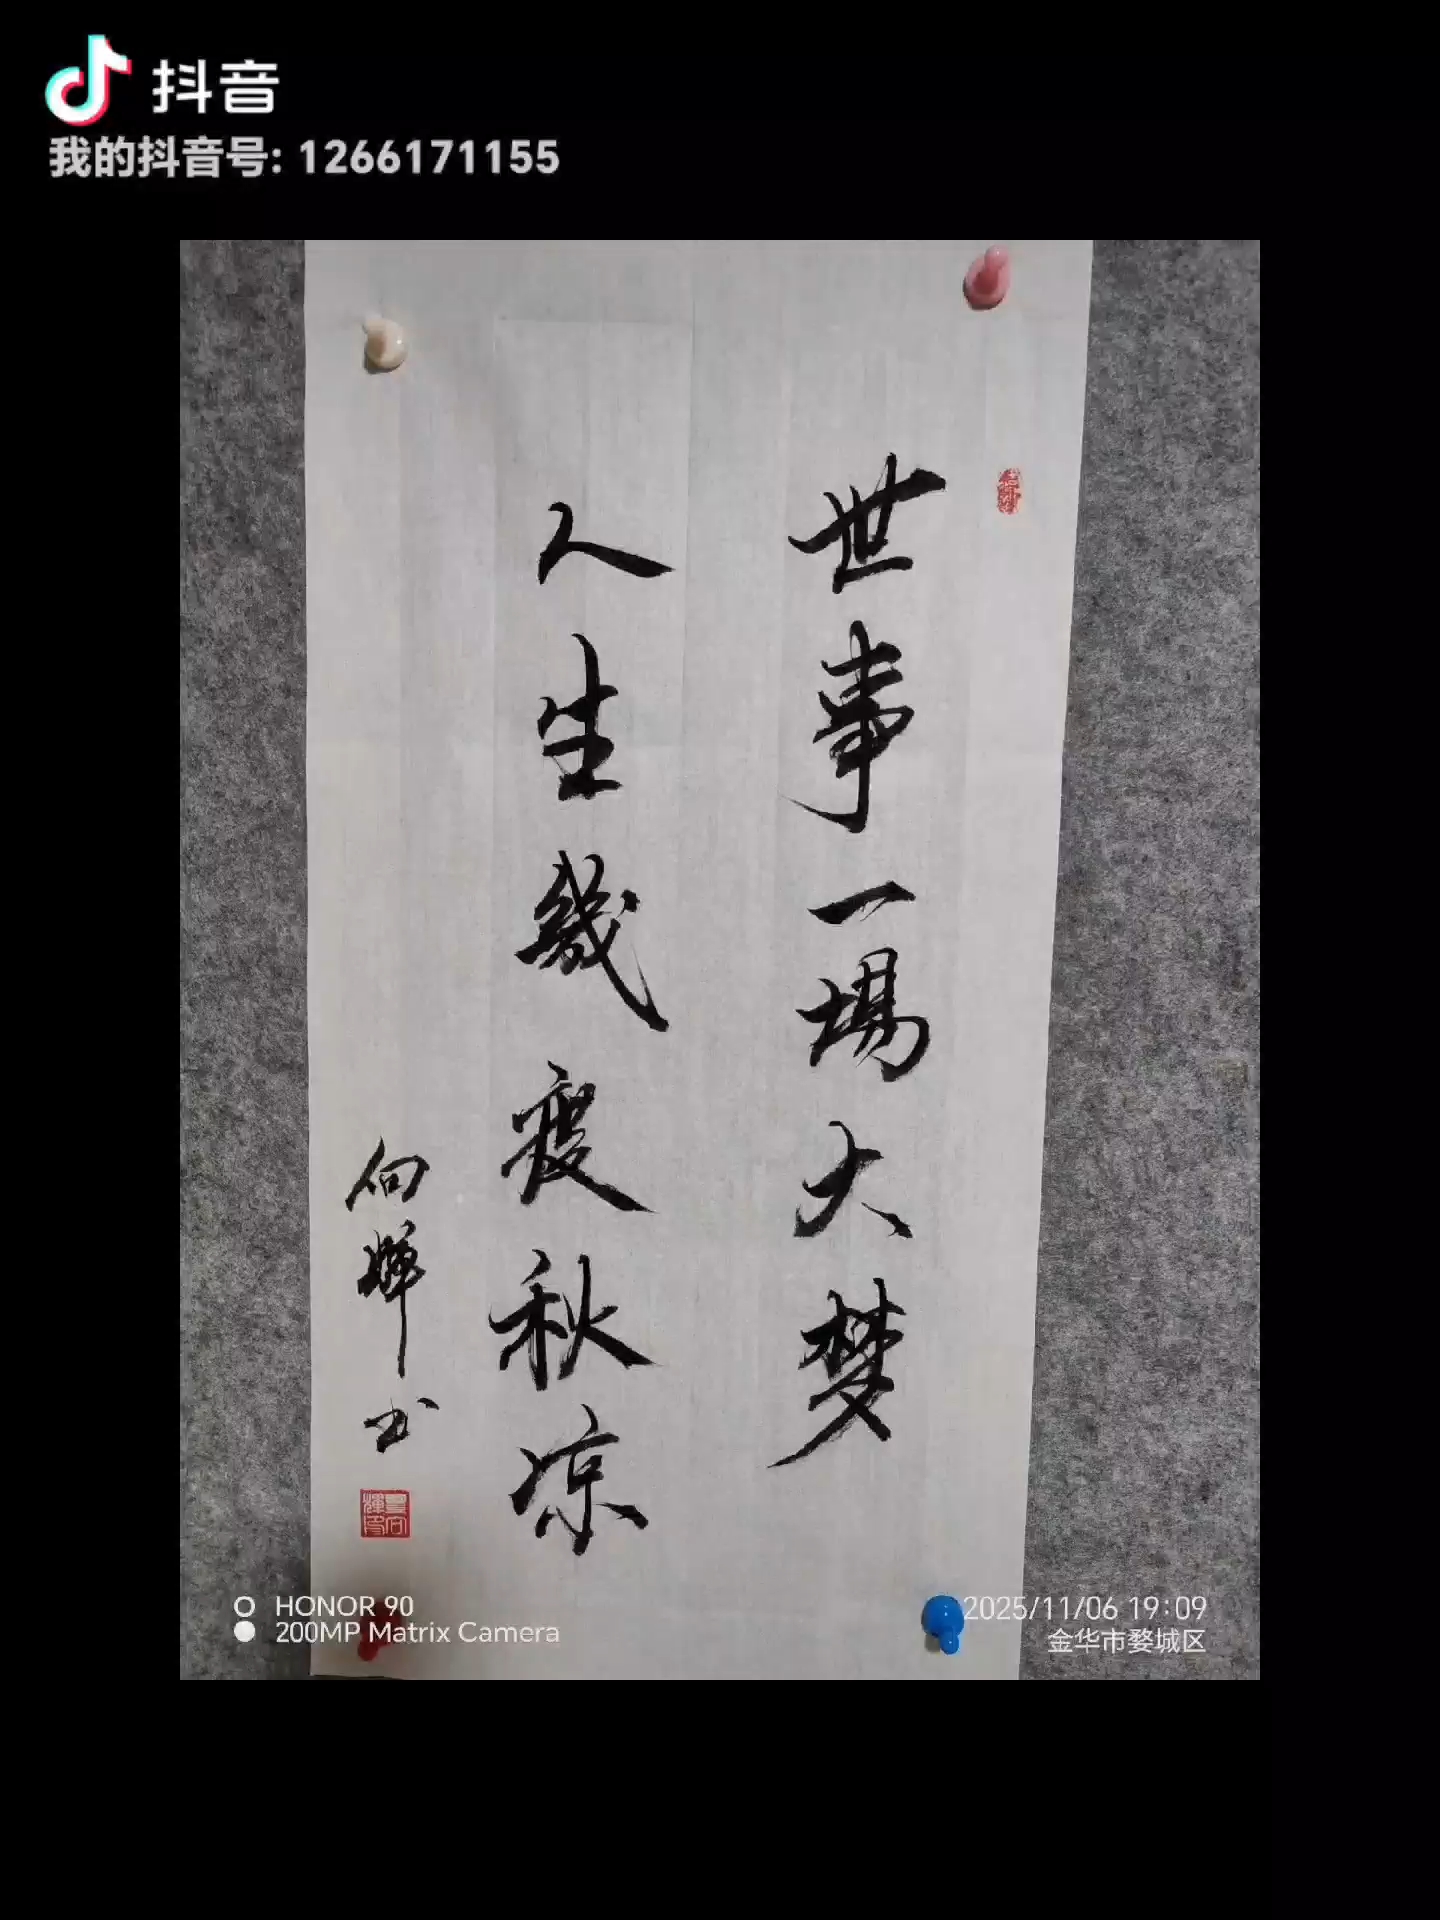 抖音
我的抖音号: 1266171155
世事一場大梦
人生幾度秋凉
向輝书
HONOR 90
200MP Matrix Camera
2025/11/06 19:09
金华市婺城区